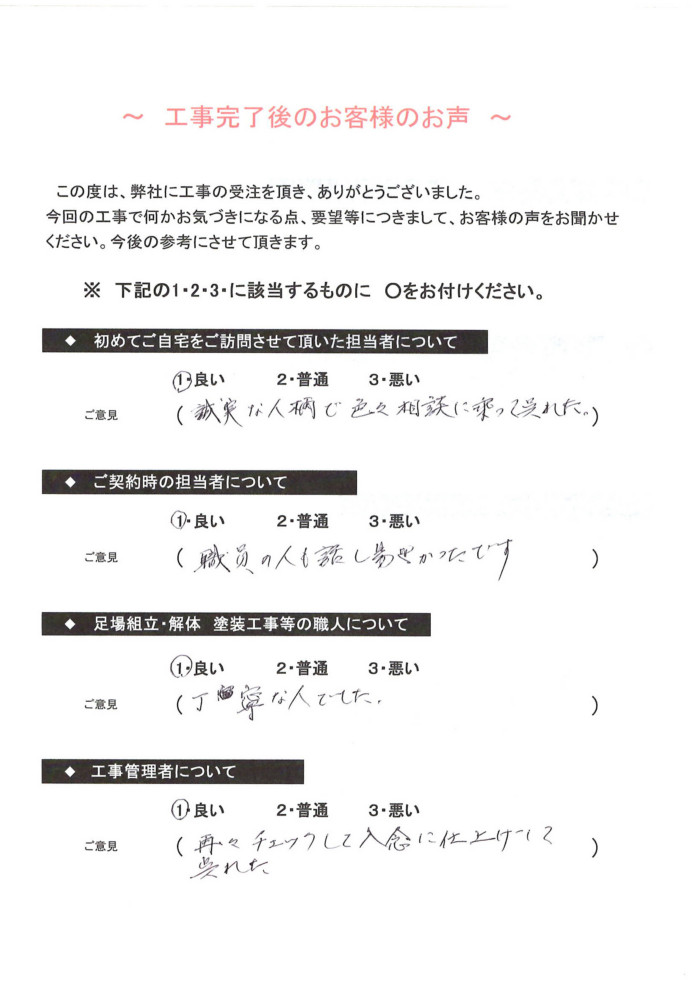 ～ 工事完了後のお客様のお声 ～
この度は、弊社に工事の受注を頂き、ありがとうございました。
今回の工事で何かお気づきになる点、要望等につきまして、お客様の声をお聞かせ
ください。今後の参考にさせて頂きます。
※ 下記の1・2・3・に該当するものに 〇をお付けください。
◆ 初めてご自宅をご訪問させて頂いた担当者について
1・良い 2・普通 3・悪い
ご意見 (誠実な人柄で色々相談に乗って呉れた。)
◆ ご契約時の担当者について
1・良い 2・普通 3・悪い
ご意見 (職員の人も話し易すかったです)
◆ 足場組立・解体 塗装工事等の職人について
1・良い 2・普通 3・悪い
ご意見 (丁寧な人でした。)
◆ 工事管理者について
1・良い 2・普通 3・悪い
ご意見 (再々チェックして入念に仕上げて
呉れた)